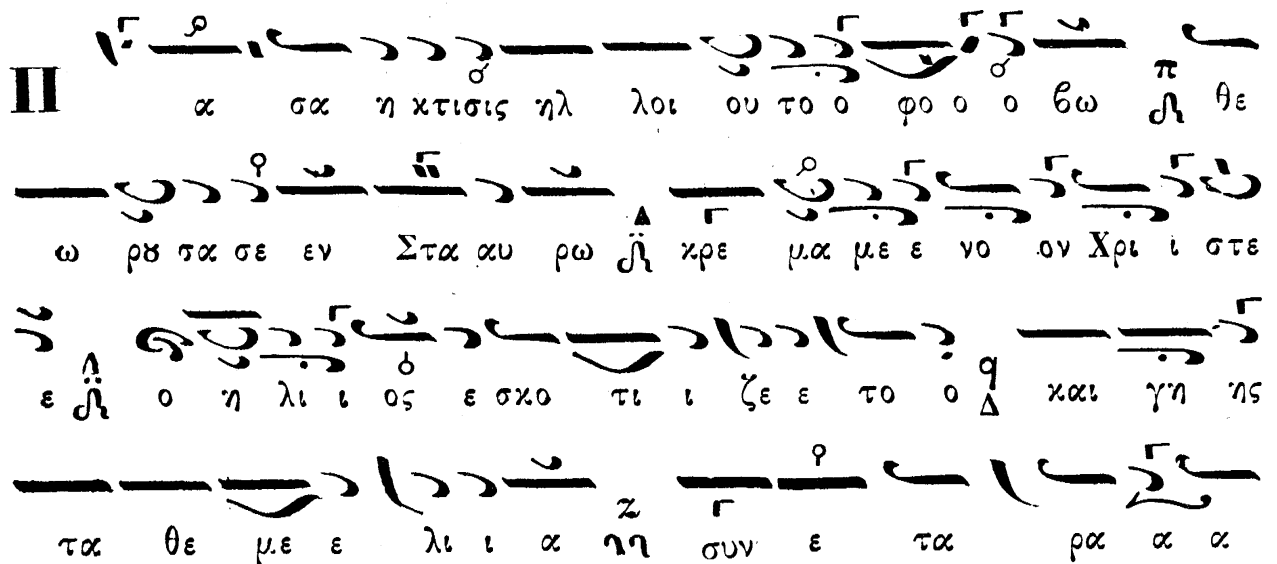 Π α σα η κτισις ηλ λοι ου το ο φο ο ο βω π θε
ω ρȣ σα σε εν Στα αυ ρω Δ κρε μα με ε νο ον Χρι ι στε
ε ο η λι ι ος ε σκο τι ι ζε ε το ο q Δ και γη ης
τα θε με ε λι ι α Ζ συν ε τα ρα α α